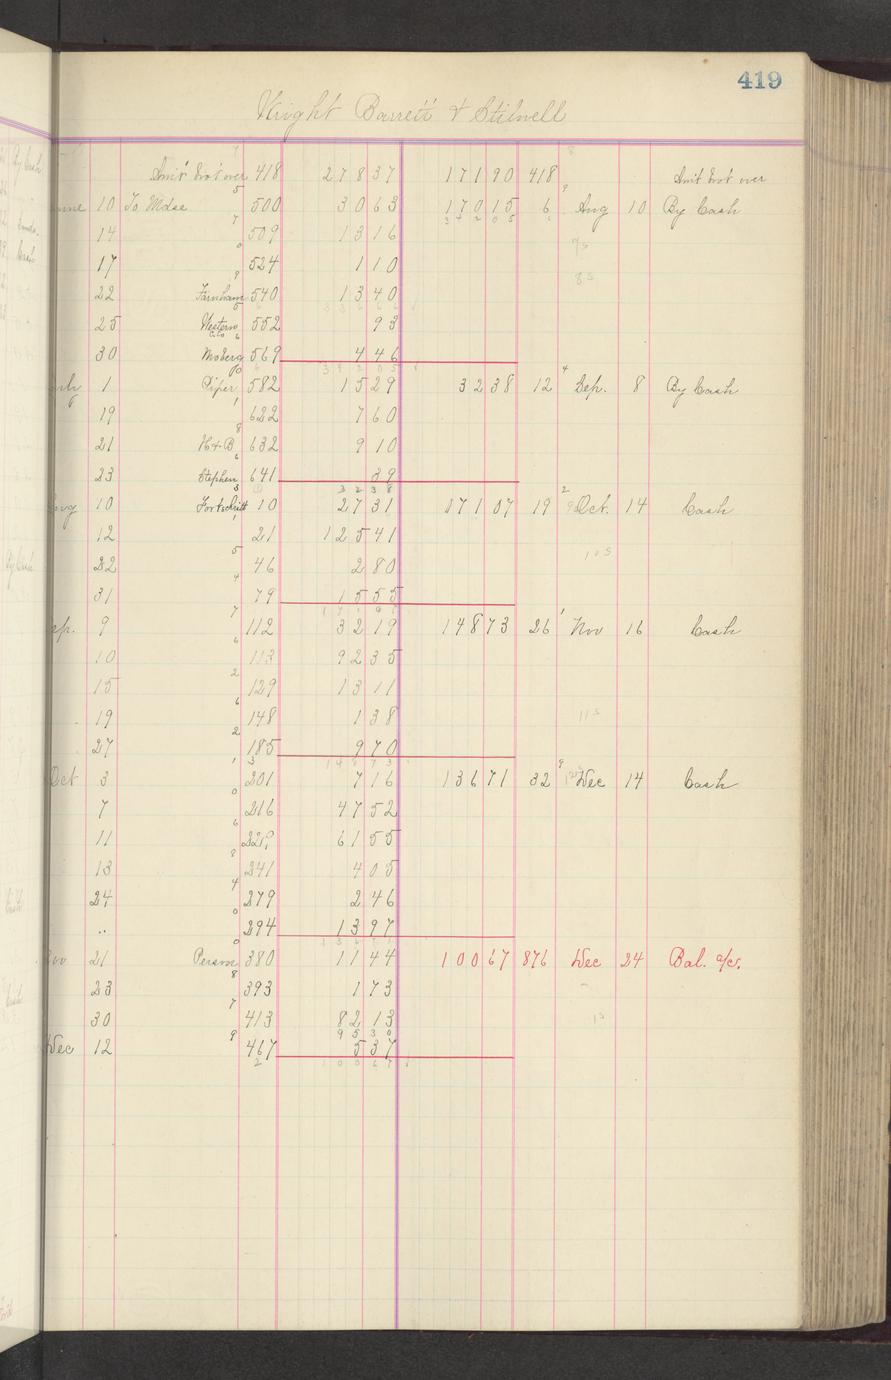 419
Wright Barrett & Stilwell
Am't bro't over 418 278 37 171 90 418 Am't bro't over
June 10 To Mdse 500 30 63 170 15 6 Aug 10 By Cash
14 509 13 16
17 524 1 10
22 Farnham 540 13 40
25 Western 552 93
30 Moberg 569 4 46
1 Piper 582 15 29 32 38 12 Sep. 8 By Cash
19 622 7 60
21 H & B 632 9 10
23 Stephen 641 39
32 38
Aug 10 10 27 31 171 07 19 Oct. 14 Cash
12 21 125 41
22 46 2 80
31 79 15 55
Sep. 9 112 32 19 148 73 26 Nov 16 Cash
10 113 92 35
15 129 13 11
19 148 1 38
27 185 9 70
Oct 3 201 7 16 136 71 32 Dec 14 Cash
7 216 47 52
11 229 61 55
13 241 4 05
24 279 2 46
.. 294 13 97
Nov 21 Person 380 11 44 100 67 876 Dec 24 Bal. a/c.
23 393 1 73
30 413 82 13
95 30
Dec 12 467 5 37
100 67